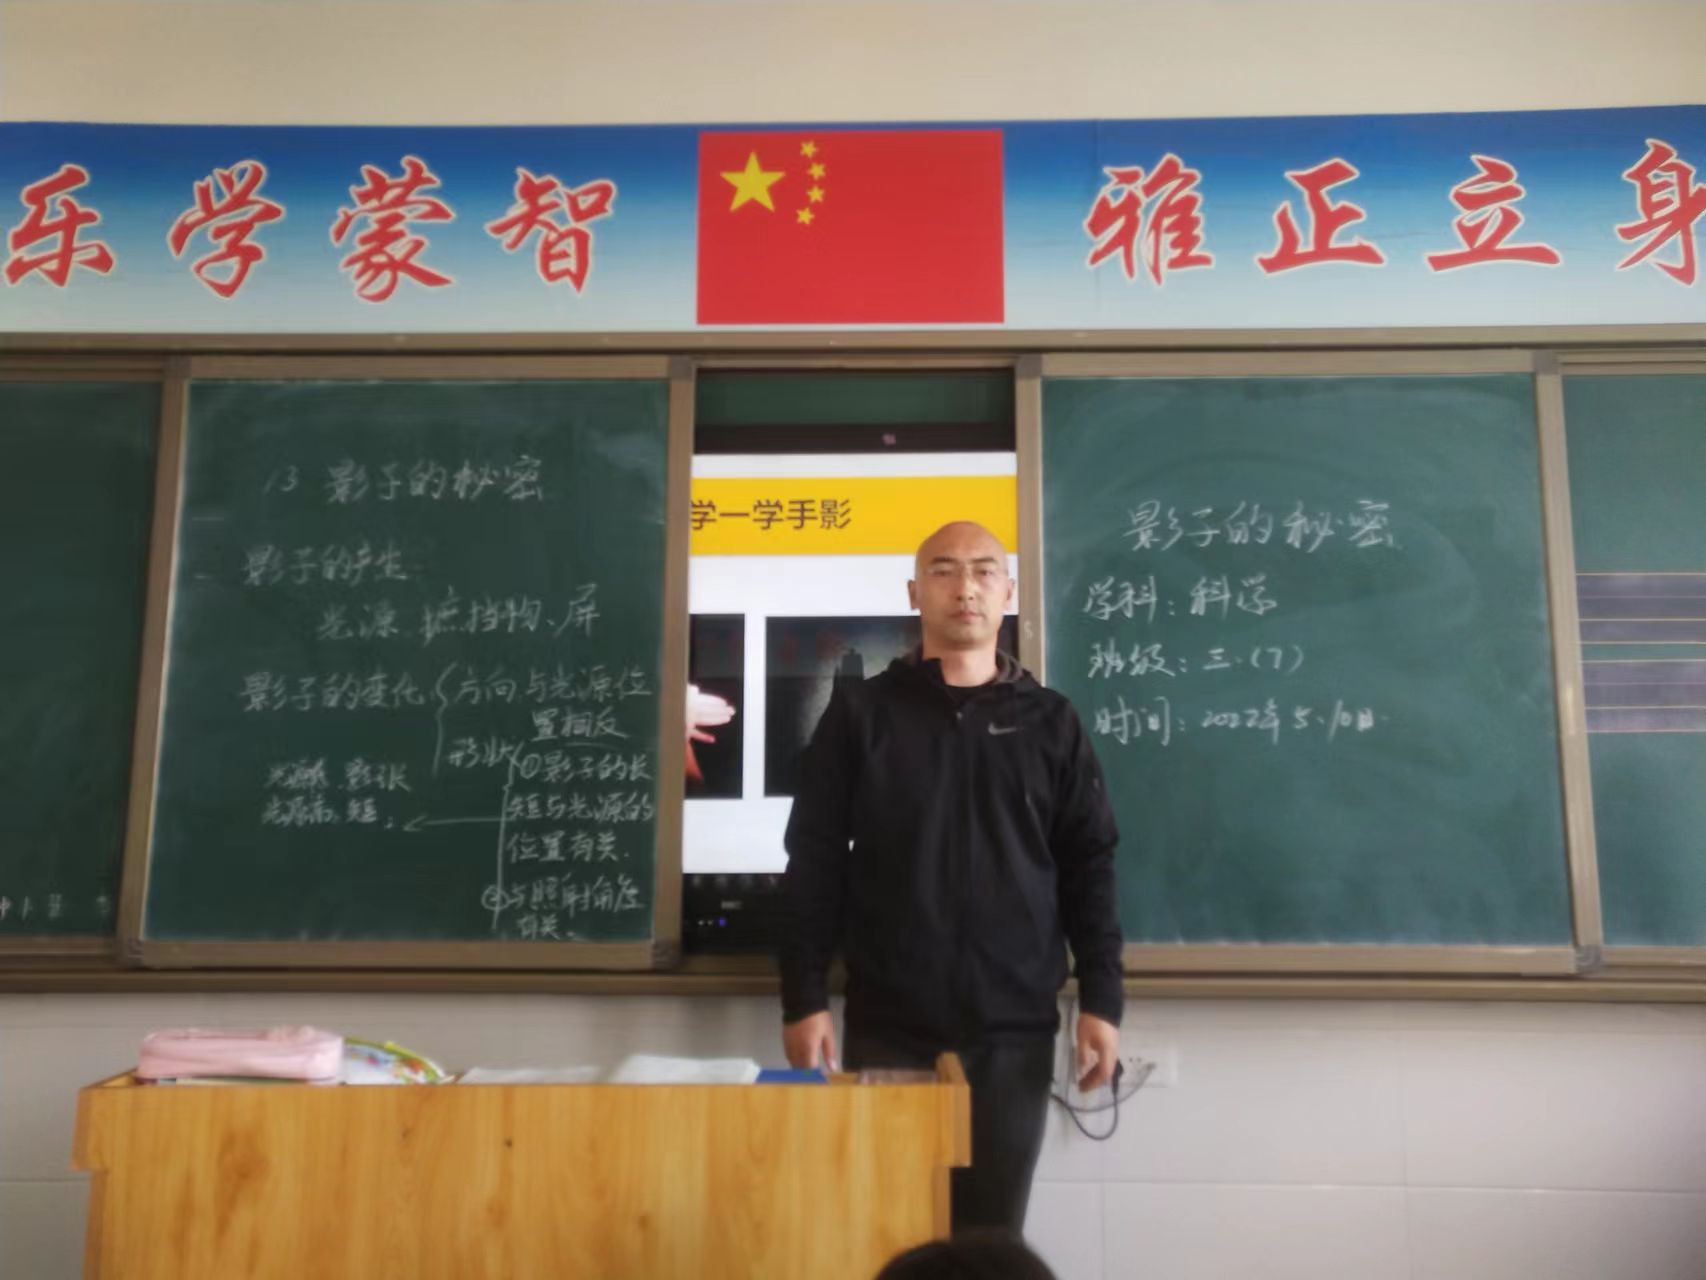 乐学蒙智 雅正立身
13 影子的秘密
影子的产生:
光源、遮挡物、屏
影子的变化 方向与光源位
置相反
形状 ①影子的长
短与光源的
位置有关.
②与照射角度
有关.
光源低、影长
光源高、短.
学一学手影
影子的秘密
学科:科学
班级:三.(7)
时间:2022年5.10日.